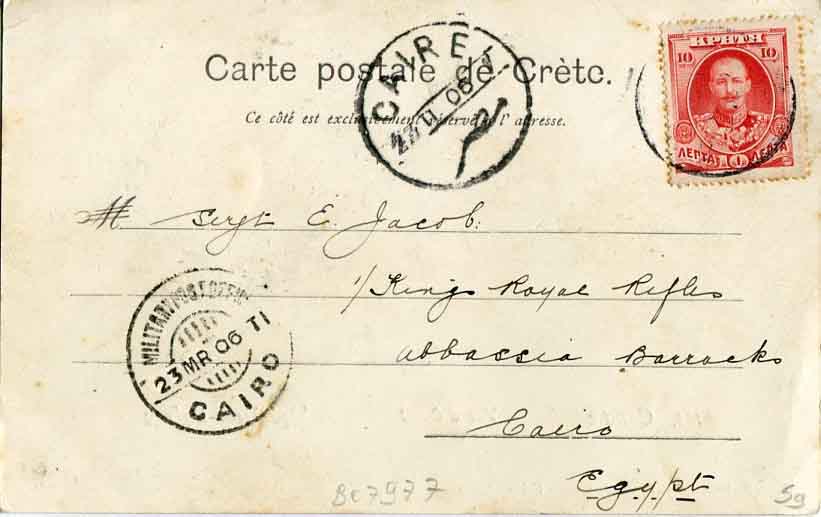 Carte postale de Crète.
Ce côté est exclusivement réservé à l'adresse.
CAIRE
06
ΚΡΗΤΗ
10 10
ΛΕΠΤΑ 10 ΛΕΠΤΑ
M Sergt E. Jacob:
1/Kings Royal Rifles
Abbassia Barracks
Cairo
Egypt
MILITARY POST OFFICE
23 MR 06 TI
CAIRO
BC7977
59